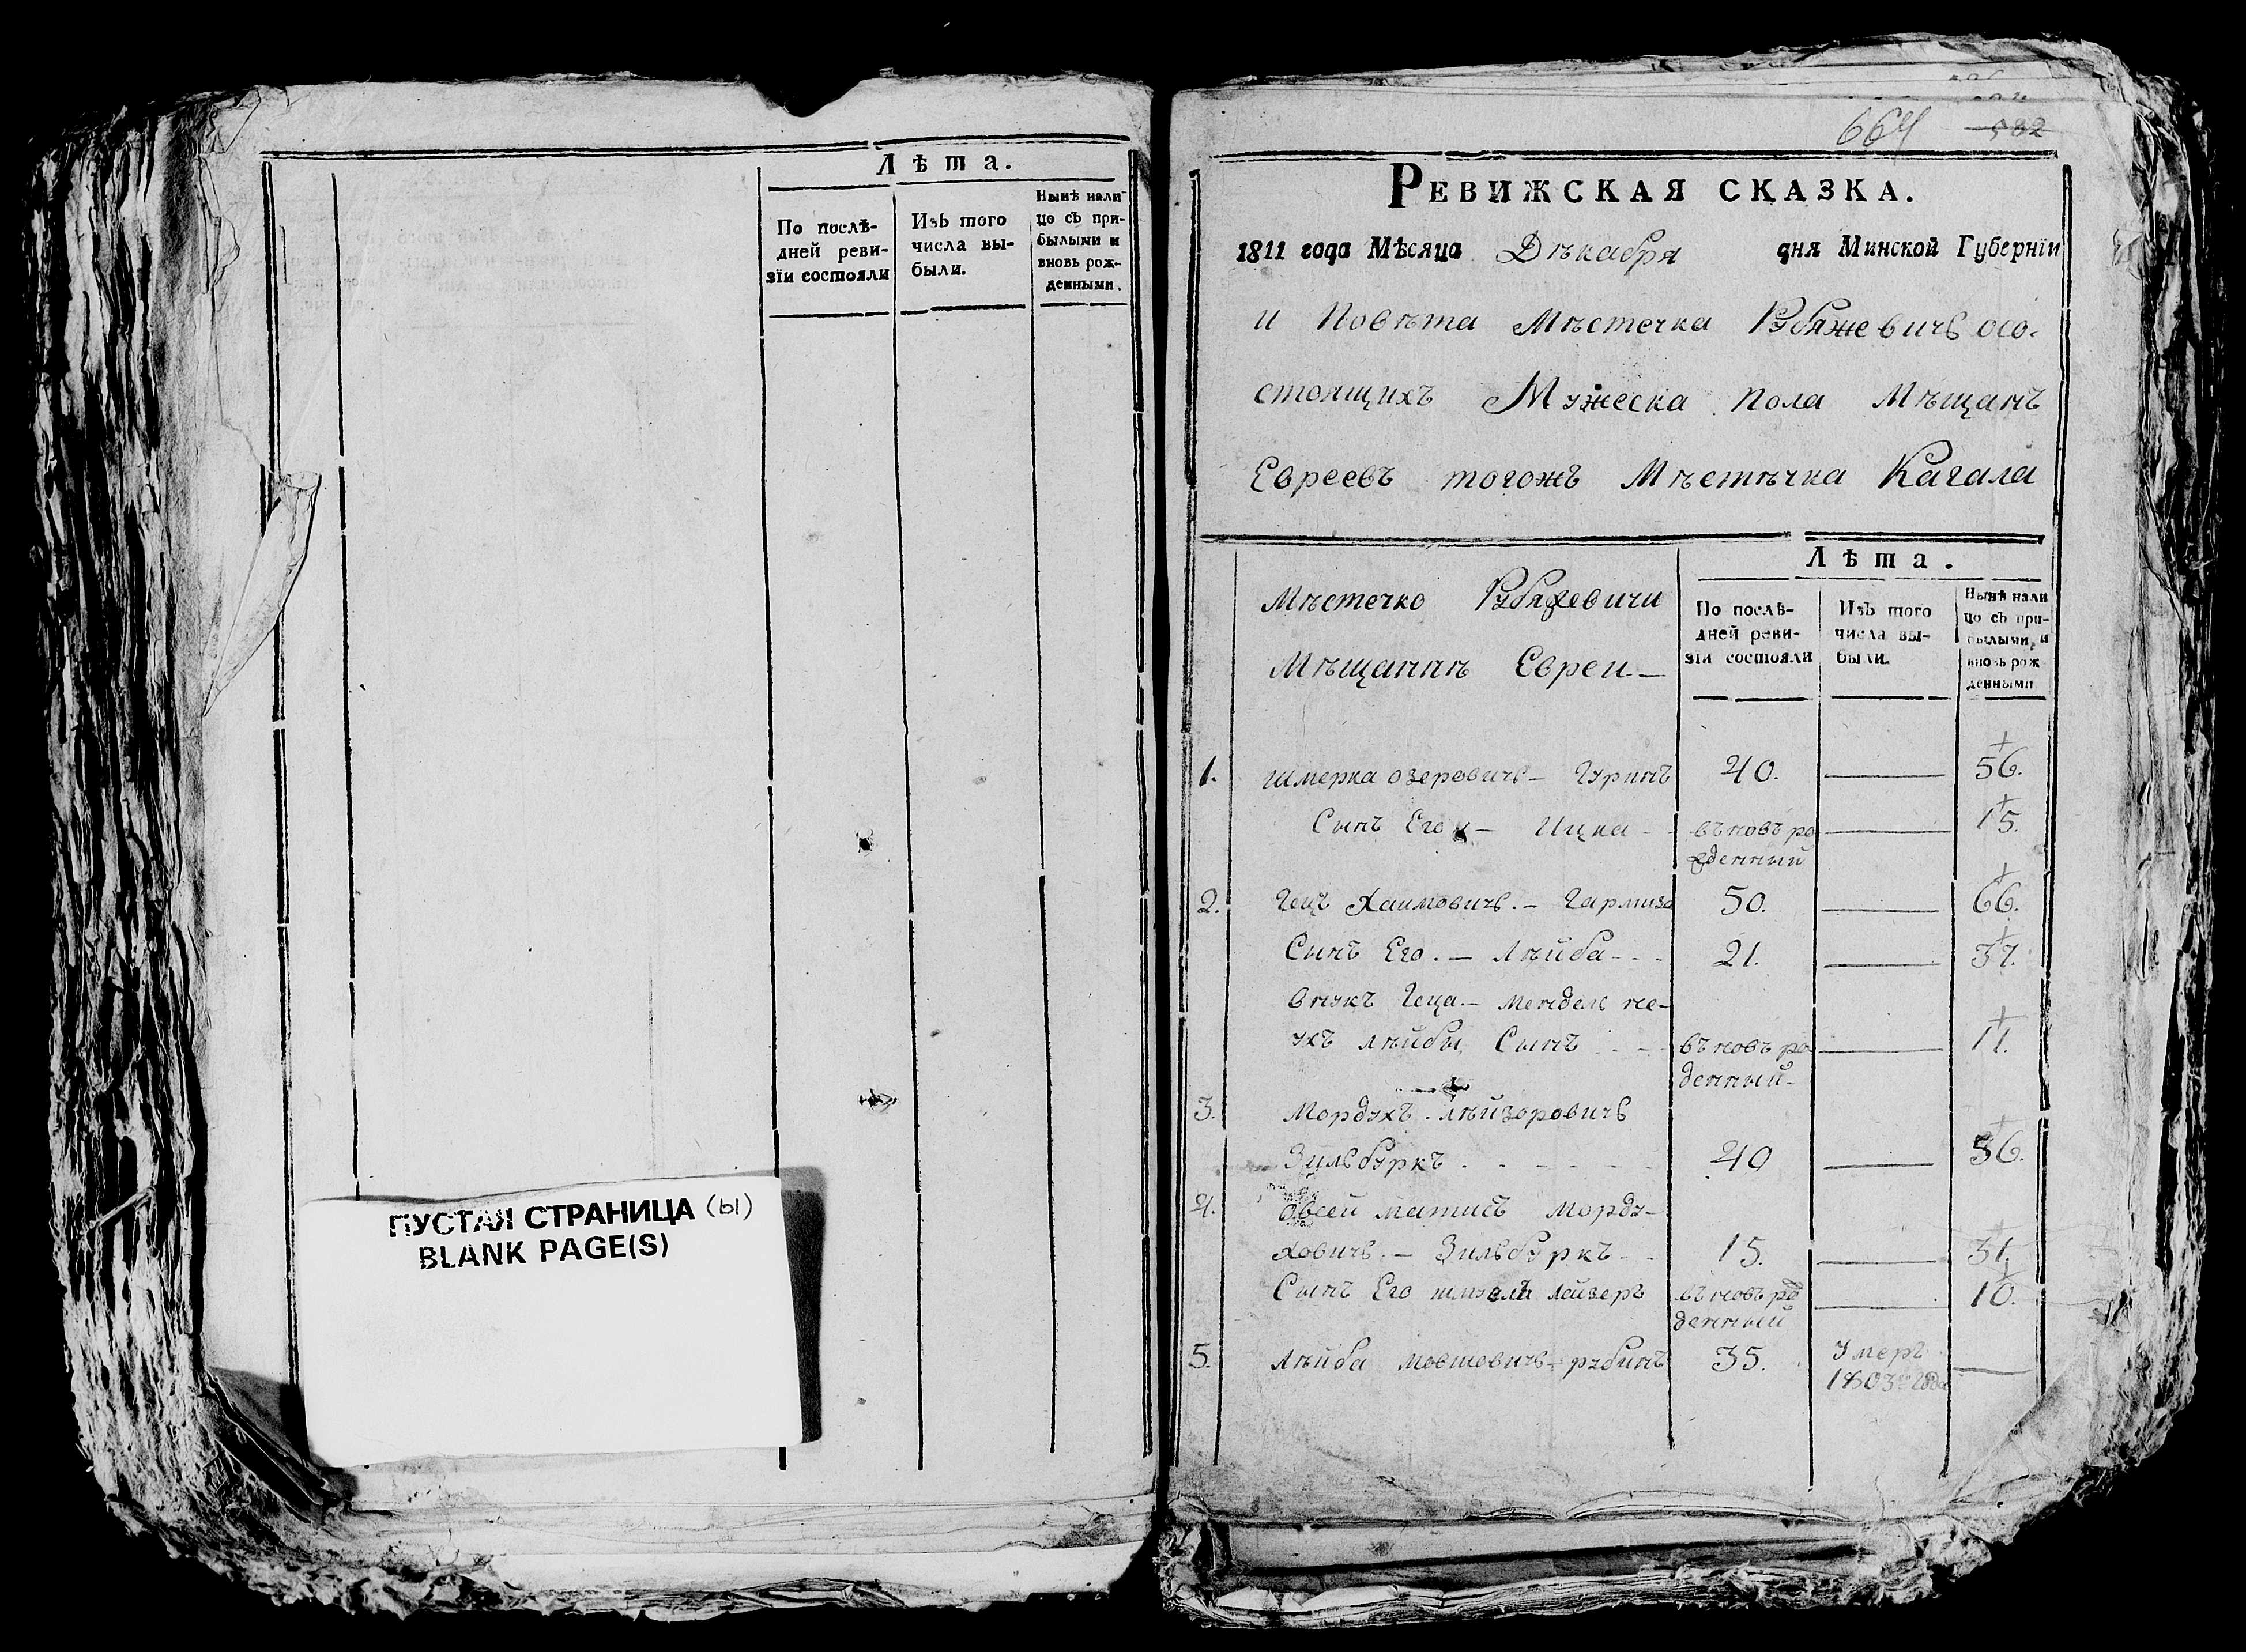 Лѣта.
По послѣ-
дней реви-
зїи состояли
Изъ того
числа вы-
были.
Нынѣ нали-
цо съ при-
былыми и
вновь рож-
денными.
ПУСТАЯ СТРАНИЦА (ы)
BLANK PAGE(S)
664 582
РЕВИЖСКАЯ СКАЗКА.
1811 года Мѣсяца Дѣкабря дня Минской Губернїи
и Повѣта Мѣстечка Рубяжевичъ осо-
стоящихъ Мужеска Пола Мѣщанъ
Евреевъ тогожъ Мѣстѣчка Кагала
Мѣстечко Рубяжевичи
Мѣщаннѣ Евреи —
Лѣта.
По послѣ-
дней реви-
зїи состояли
Изъ того
числа вы-
были.
Нынѣ нали
цо съ при-
былыми и
вновь рож
денными
1. Шмерка озеровичъ — Гуринъ 40. — 56.
Сынъ Его — Ицка — въновь ро — 15.
жденный
2. Гецъ Хаимовичъ. — Гармиза 50. — 66.
Сынъ Его. — Лѣйба - - - 21. — 37.
внукъ Геца. — Мендель пе-
ухъ лѣйбы Сынъ - - - въновь ро — 11.
денный
3. Мордухъ лѣйзоровичъ
Зильбуркъ 40 — 56.
4. Овсей матисъ Morду-
ховичъ. — Зильбуркъ - - 15. — 31.
Сынъ Его шмуель лейзеръ въновь ро — 10.
денный
5. лѣйба мовшовичъ — рубинъ 35. Умеръ —
1803 года